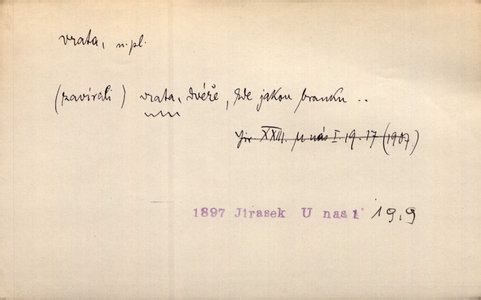 vrata, n. pl.
(zavírali) vrata, dvéře, kde jakou branku ..
Jir XXIII. U nás I. 19.17 (1907)
1897 Jirasek U nas 1 19,9